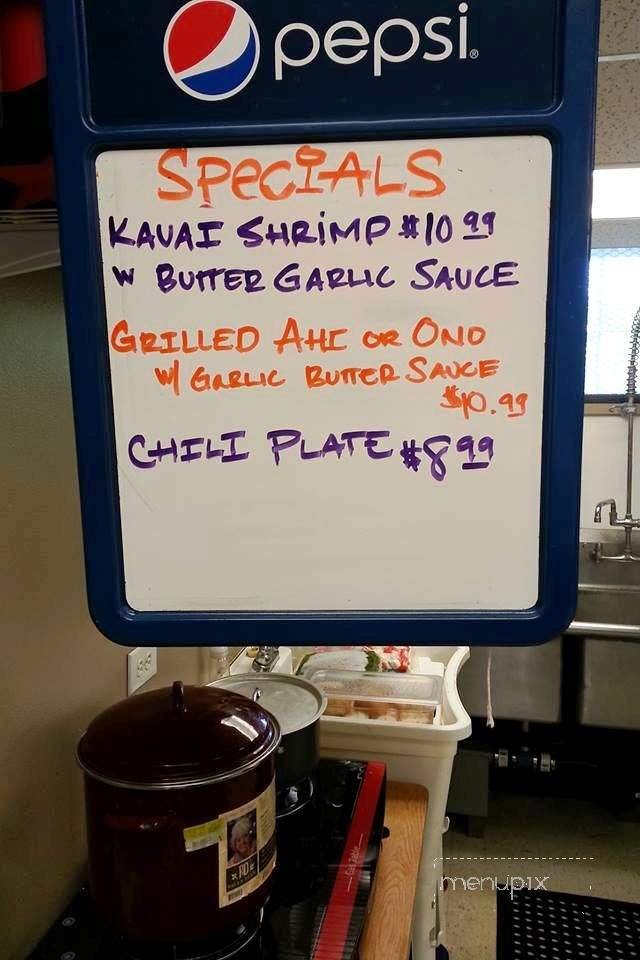 pepsi®
SPECIALS
KAUAI SHRIMP $10 99
W BUTTER GARLIC SAUCE
GRILLED AHI OR ONO
W/ GARLIC BUTTER SAUCE
$10.99
CHILI PLATE $8 99
menupix